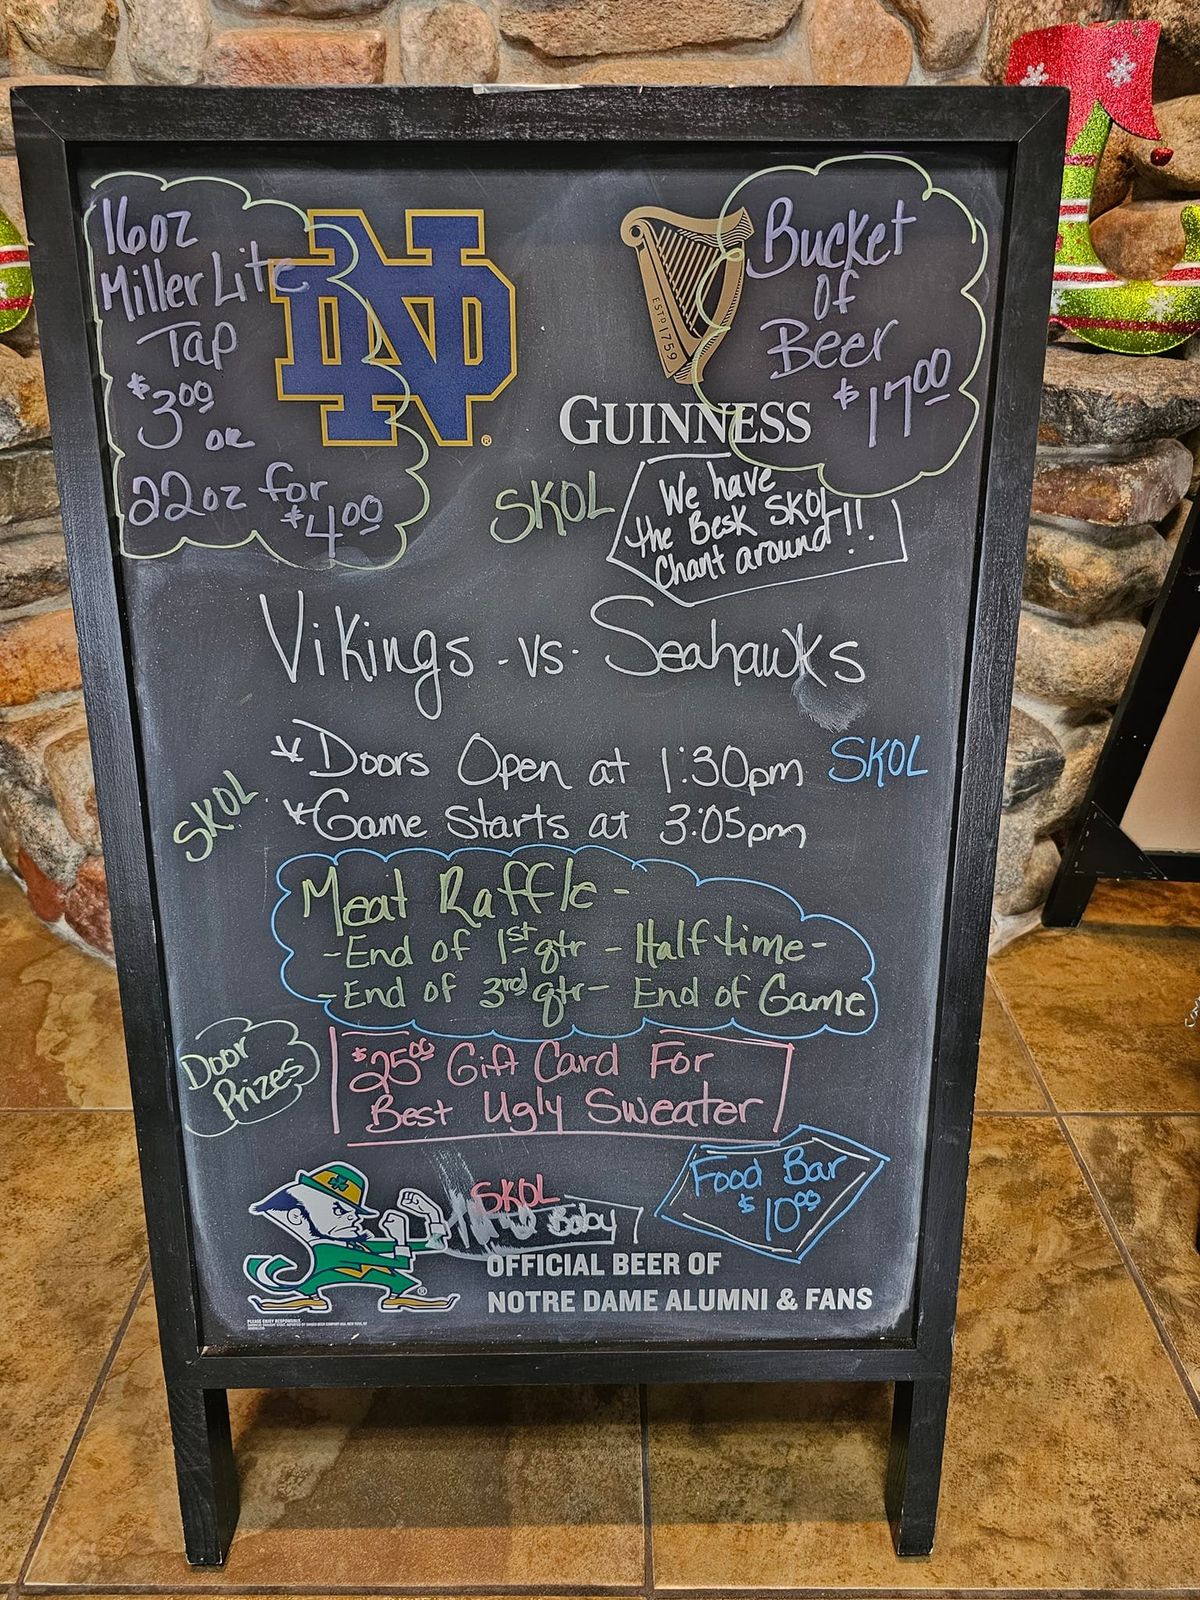 16oz
Miller Lite
Tap
$3.00 or
22oz for
$4.00
ND
®
ESTD 1759
GUINNESS
Bucket
of
Beer
$17.00
SKOL
We have
the Besk SKOL
Chant around!!
Vikings - vs - Seahawks
*Doors Open at 1:30pm
SKOL
SKOL
*Game Starts at 3:05pm
Meat Raffle-
-End of 1st qtr - Halftime-
-End of 3rd qtr- End of Game
Door
Prizes
$25.00 Gift Card For
Best Ugly Sweater
Food Bar
$10.00
SKOL
Baby
®
OFFICIAL BEER OF
NOTRE DAME ALUMNI & FANS
PLEASE ENJOY RESPONSIBLY.